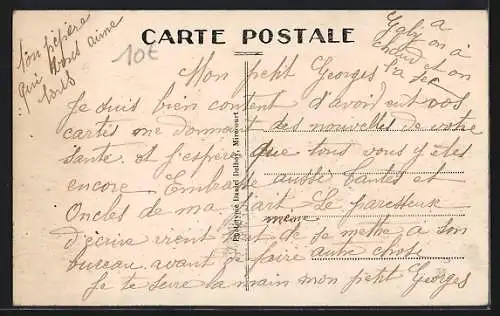 Ton pépère
qui vous aime
tous
10€
CARTE POSTALE
a
Ggby on à
chaud et on
l'a sec
Mon petit Georges
Je suis bien content d'avoir eut vos
cartes me donnant des nouvelles de votre
santé et j'espère que tous vous y êtes
encore Embrasse aussi tantes et
Oncles de ma part. Le paresseux
même
d'écrire vient tout de se mettre à son
bureau avant de faire autre chose
Je te serre la main mon petit Georges
Phototype Daniel Delboy, Mirecourt